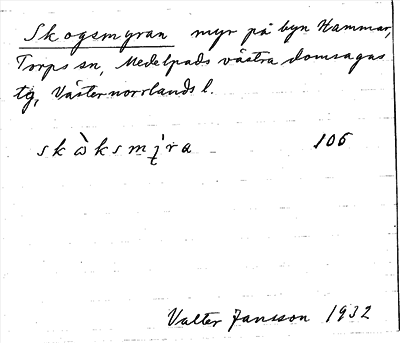 Skogsmyran myr på byn Hammar,
Torps sn, Medelpads västra domsagas
tg, Västernorrlands l.
skὼksmi̯ra 106
Valter Jansson 1932